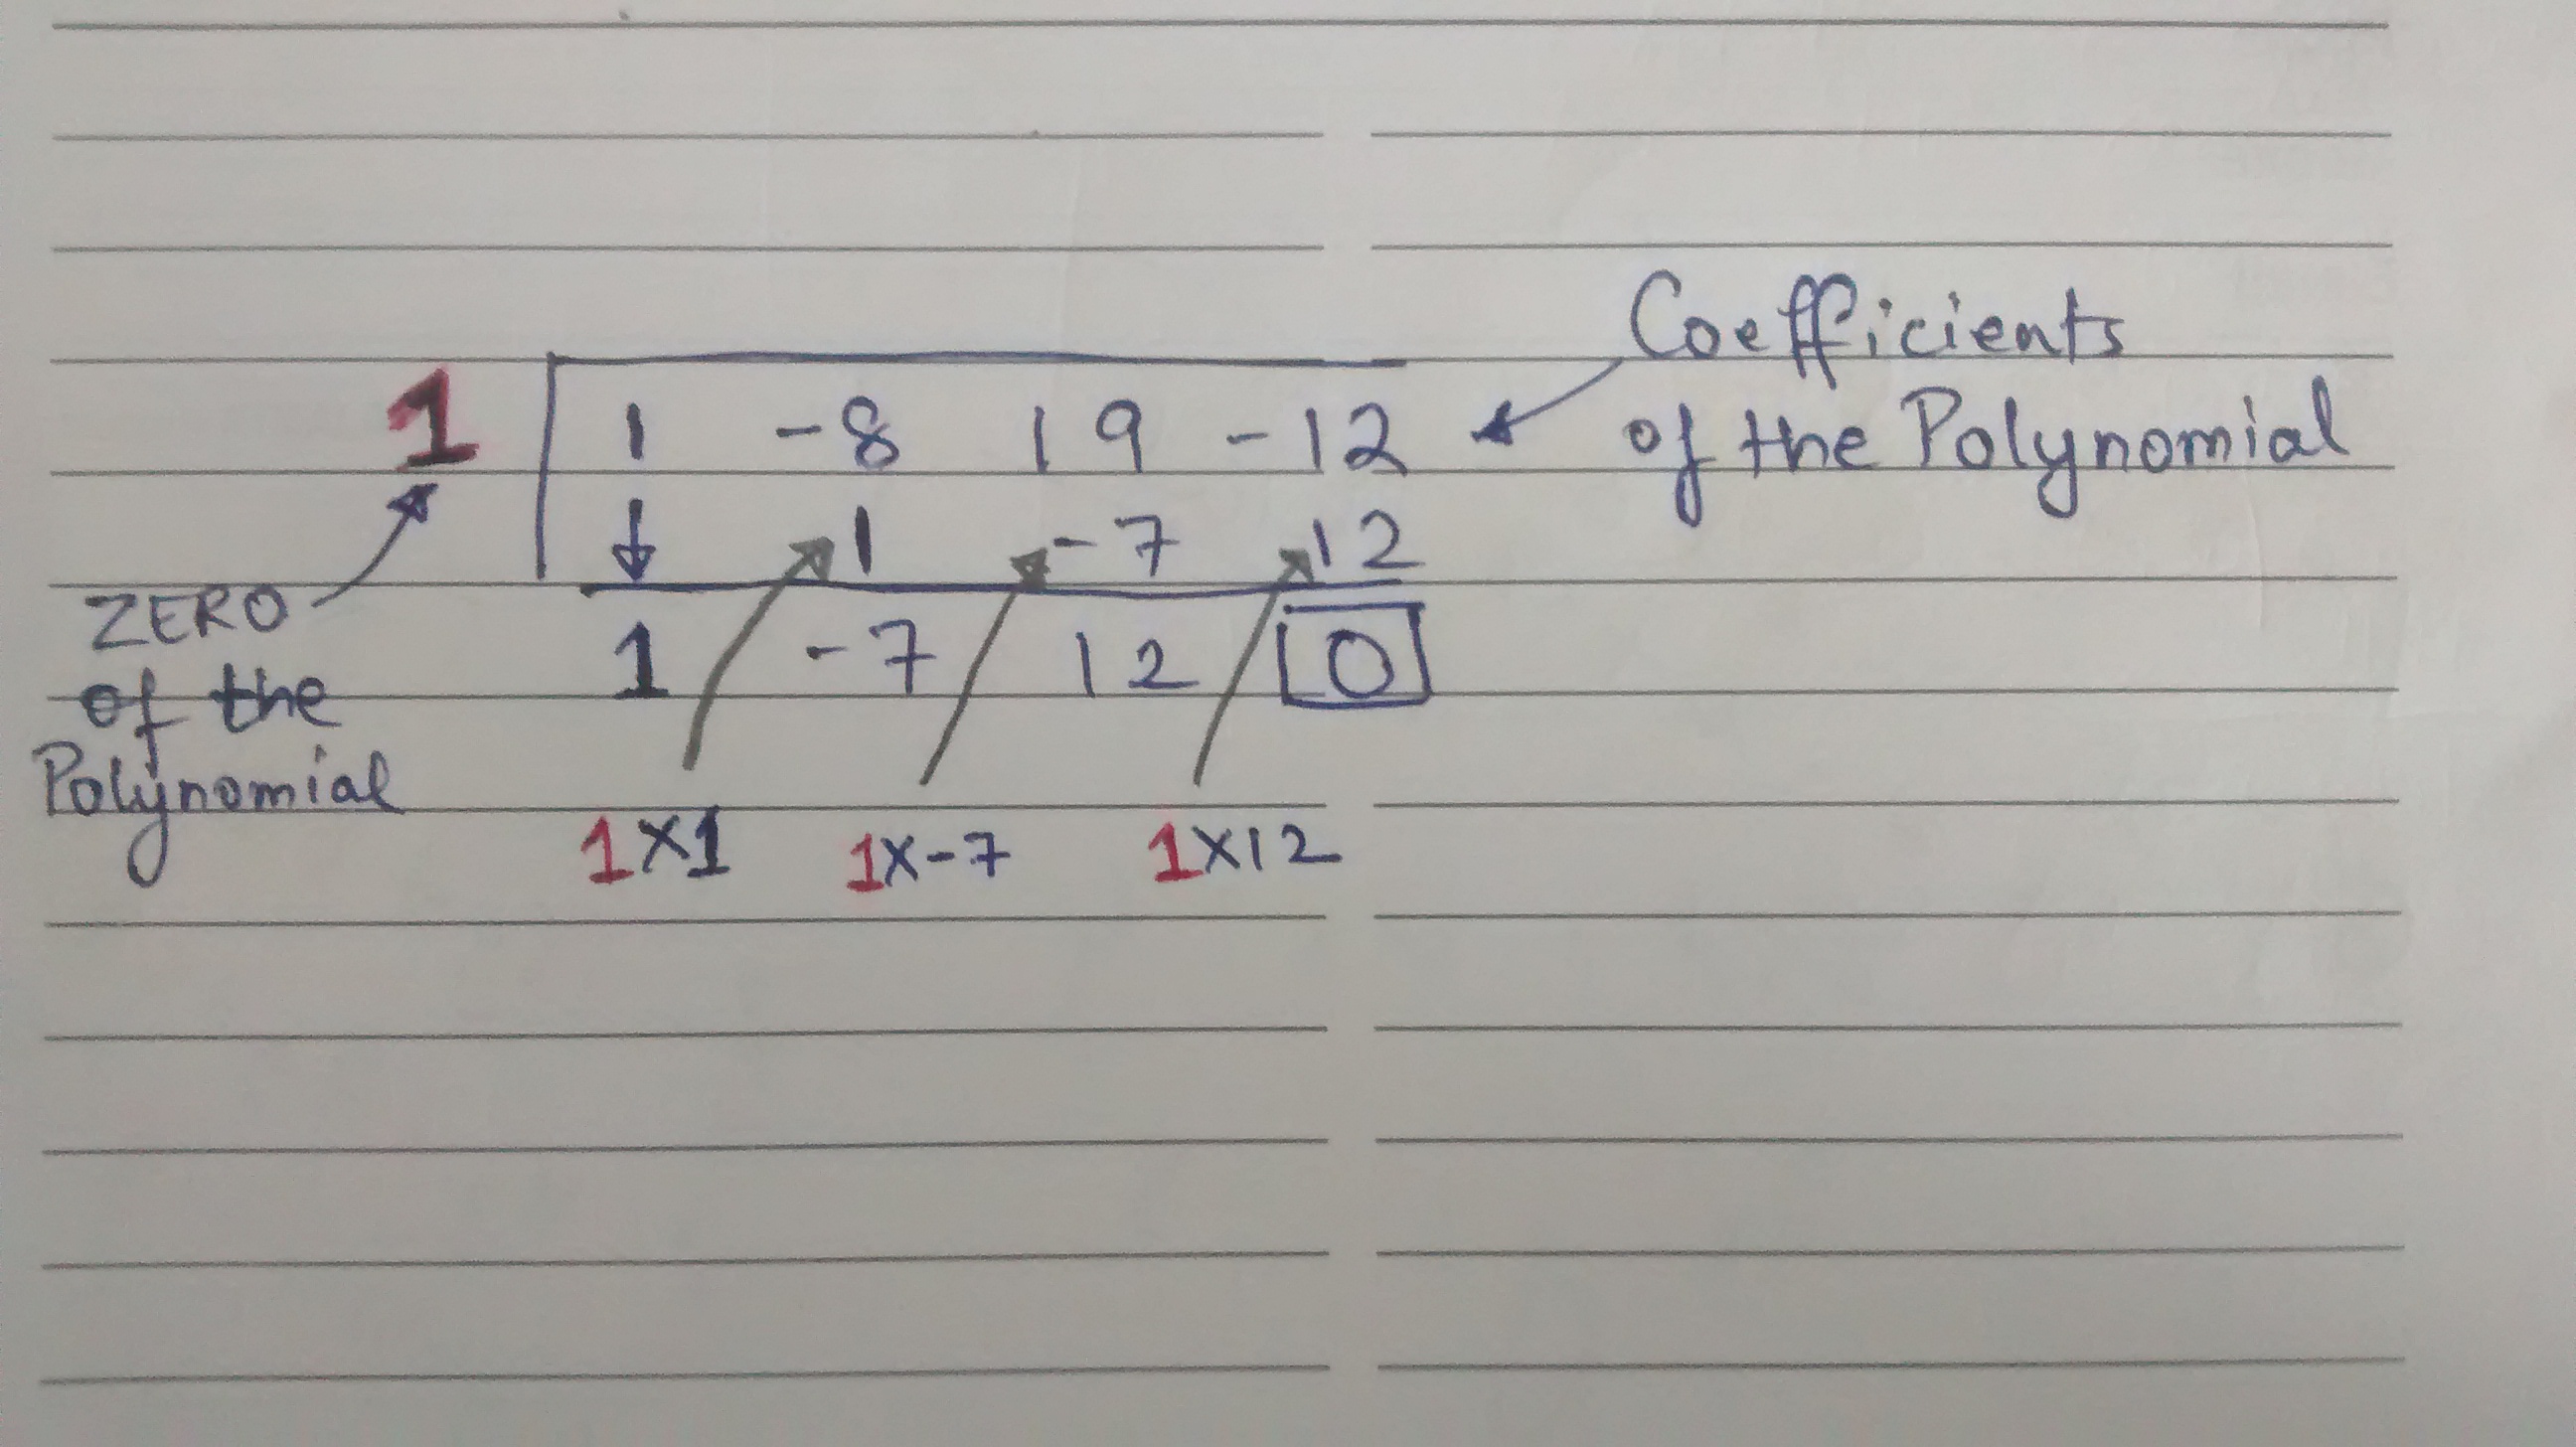 Coefficients
of the Polynomial
1 1 -8 19 -12
1 -7 12
1 -7 12 0
ZERO
of the
Polynomial
1x1 1x-7 1x12